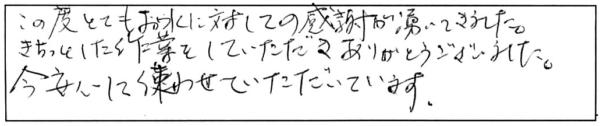 この度とてもお水に対しての感謝が湧いてきました。
きちっとしたくだ掌をしていただきありがとうございました。
今安心して使わせていただいています。